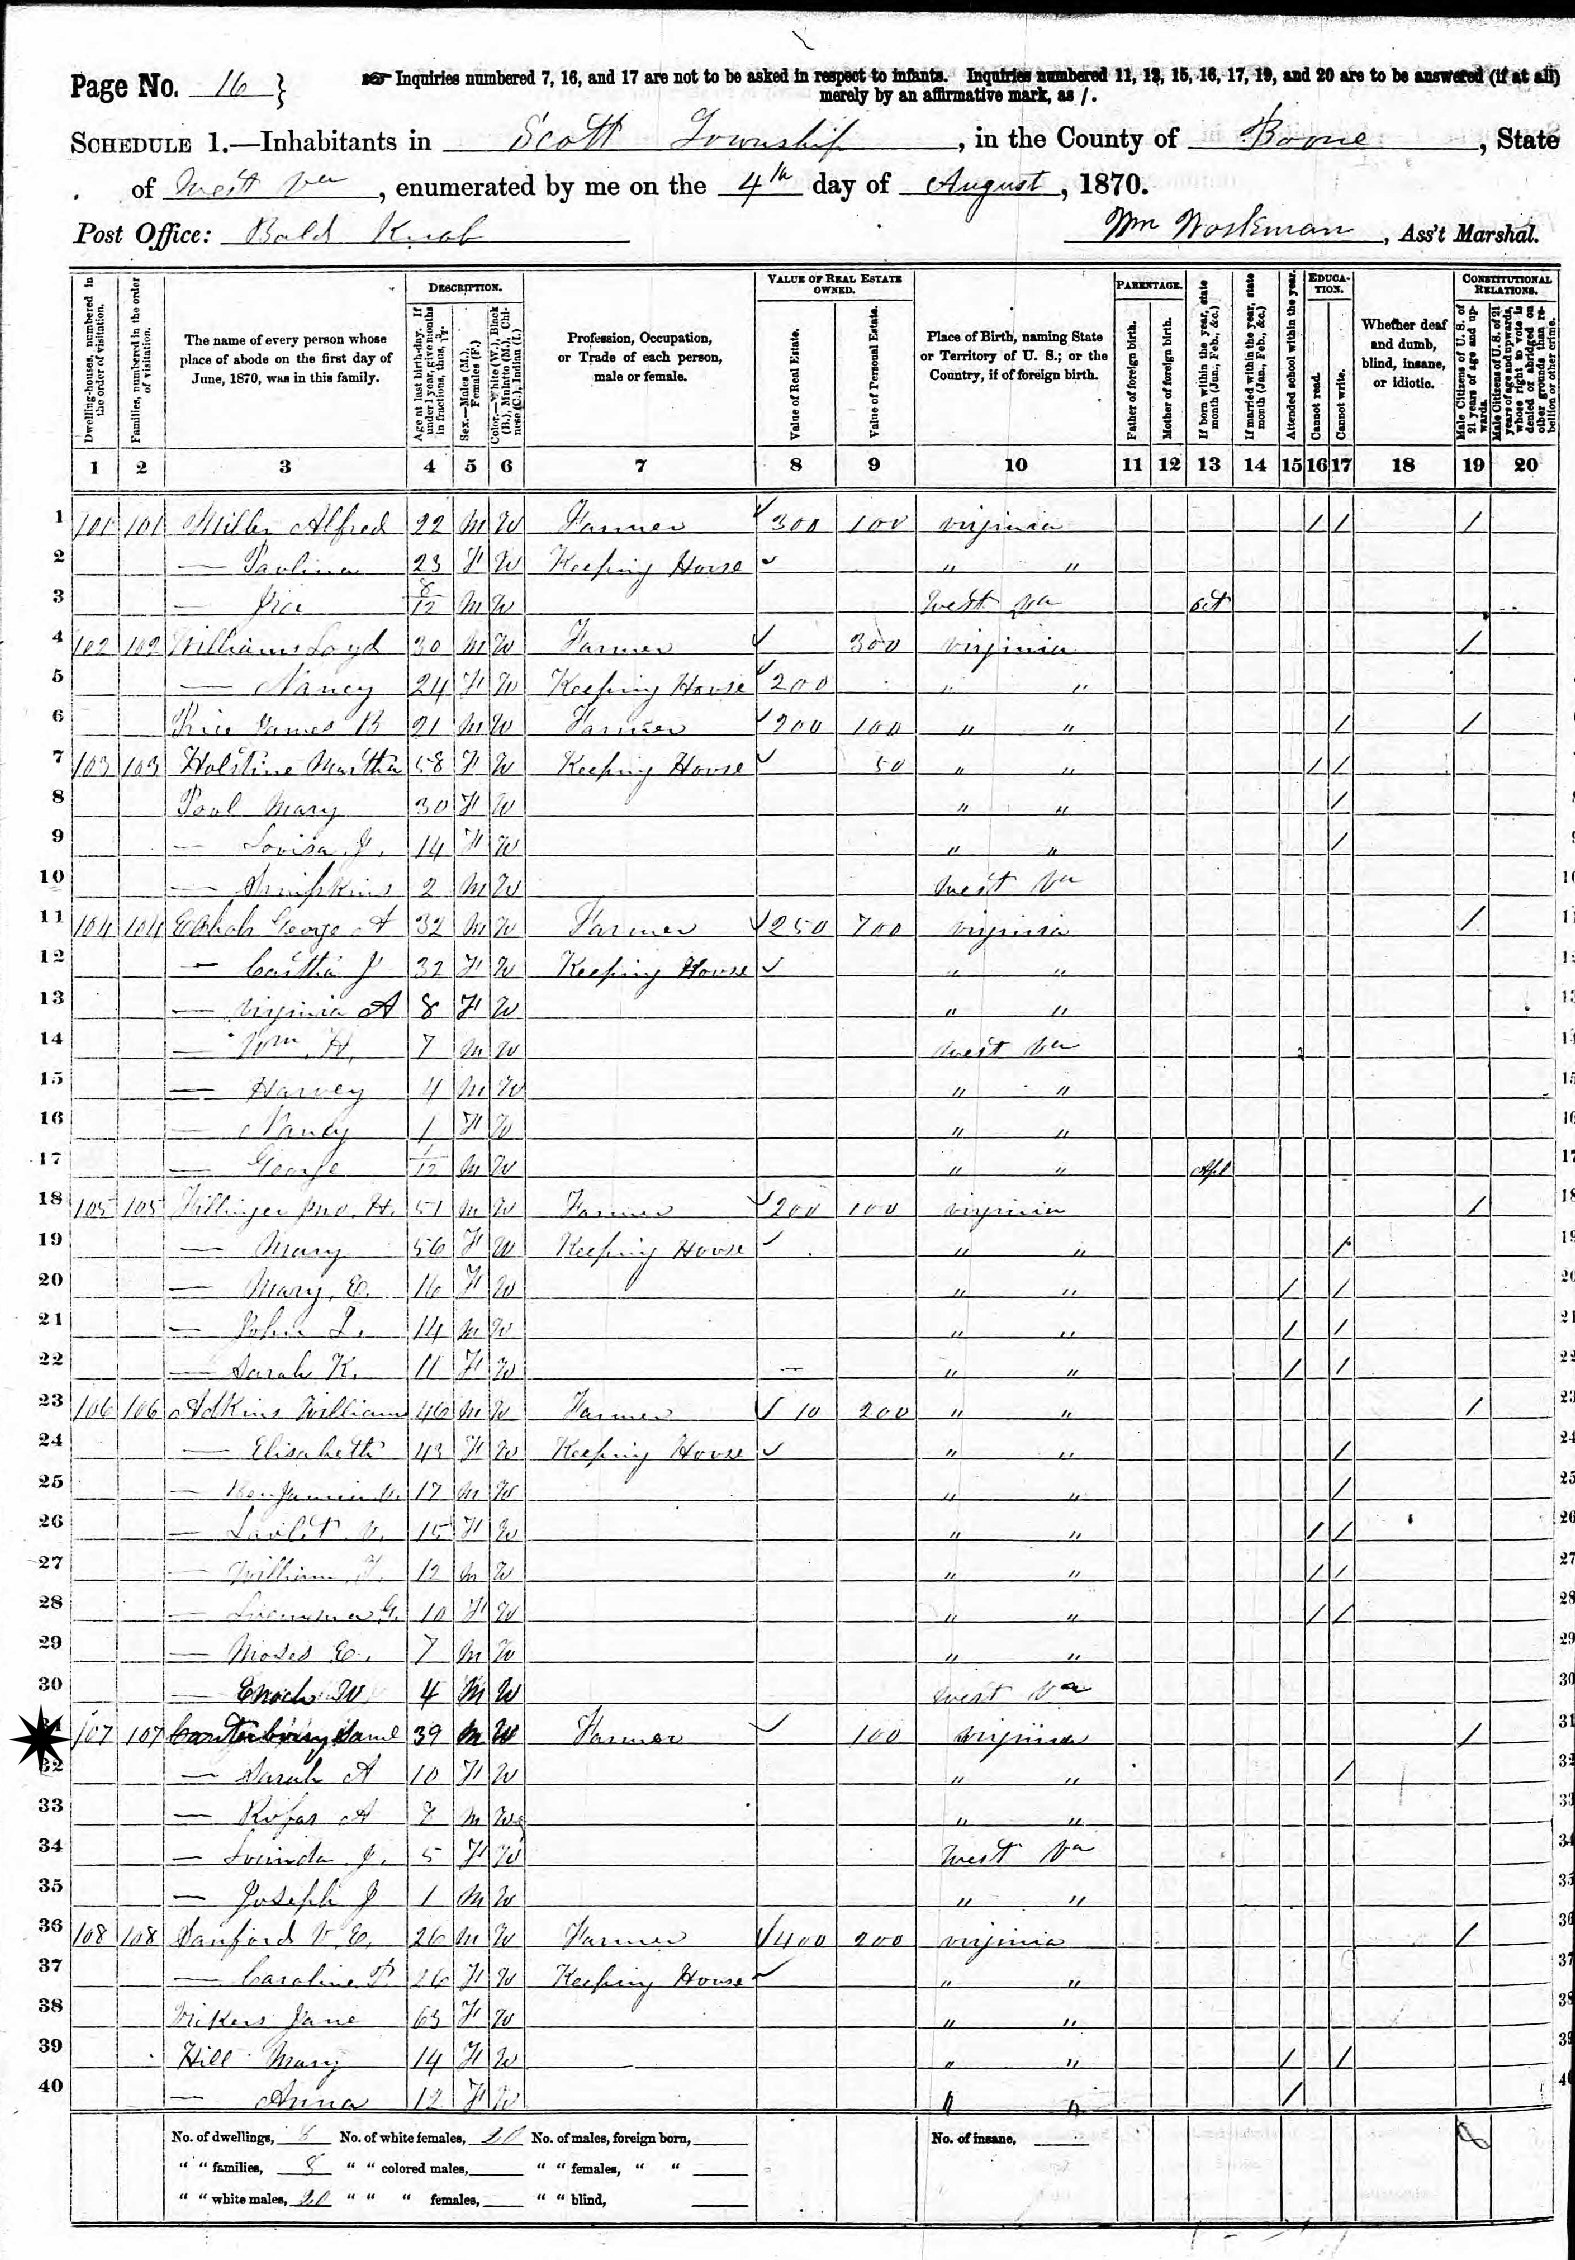 Page No. 16 } Inquiries numbered 7, 16, and 17 are not to be asked in respect to infants. Inquiries numbered 11, 12, 15, 16, 17, 19, and 20 are to be answered (if at all)
merely by an affirmative mark, as /.
SCHEDULE 1.—Inhabitants in Scott Township, in the County of Boone, State
of West Va, enumerated by me on the 4th day of August, 1870.
Post Office: Bald Knob Wm Workman, Ass't Marshal.
Dwelling-houses, numbered in the order of visitation.
Families, numbered in the order of visitation.
The name of every person whose place of abode on the first day of June, 1870, was in this family.
DESCRIPTION.
Age at last birth-day. If under 1 year, give months in fractions, thus, 3/12
Sex.—Males (M.), Females (F.)
Color.—White (W.), Black (B.), Mulatto (M.), Chinese (C.), Indian (I.)
Profession, Occupation, or Trade of each person, male or female.
VALUE OF REAL ESTATE OWNED.
Value of Real Estate.
Value of Personal Estate.
Place of Birth, naming State or Territory of U. S.; or the Country, if of foreign birth.
PARENTAGE.
Father of foreign birth.
Mother of foreign birth.
If born within the year, state month (Jan., Feb., &c.)
If married within the year, state month (Jan., Feb., &c.)
Attended school within the year.
EDUCATION.
Cannot read.
Cannot write.
Whether deaf and dumb, blind, insane, or idiotic.
CONSTITUTIONAL RELATIONS.
Male Citizens of U. S. of 21 years of age and upwards.
Male Citizens of U. S. of 21 years of age and upwards, whose right to vote is denied or abridged on other grounds than rebellion or other crime.
1 2 3 4 5 6 7 8 9 10 11 12 13 14 15 16 17 18 19 20
1 101 101 Miller Alfred 22 M W Farmer ✓ 300 100 Virginia / / /
2 — Paulina 23 F W Keeping House ✓ " "
3 — 8/12 M W West Va Oct
4 102 102 Williams Loyd 30 M W Farmer ✓ 300 Virginia /
5 — Nancy 24 F W Keeping House ✓ 200 " "
6 Price James B 21 M W Farmer ✓ 200 100 " " / /
7 103 103 Holstine Martha 58 F W Keeping House ✓ 50 " " / /
8 Pool Mary 30 F W " " /
9 — Lovisa J. 14 F W " " /
10 — 2 M W West Va
11 104 104 George A 32 M W Farmer ✓ 250 700 Virginia /
12 — J 32 F W Keeping House ✓ " "
13 — Virginia A 8 F W " "
14 — Wm. H. 7 M W West Va
15 — Harvey 4 M W " "
16 — Nancy 1 F W " "
17 — George 1/12 M W " " Apl
18 105 105 Jno. H. 51 M W Farmer ✓ 200 100 Virginia /
19 — Mary 56 F W Keeping House ✓ " " /
20 — Mary E. 16 F W " " / /
21 — John L. 14 M W " " / /
22 — Sarah K. 11 F W " " / /
23 106 106 Adkins William 46 M W Farmer ✓ 10 200 " " /
24 — Elisabeth 43 F W Keeping House ✓ " " /
25 — Benjamin 17 M W " " /
26 — V. 15 F W " " / /
27 — William 12 M W " " / /
28 — 10 F W " " / /
29 — Moses E. 7 M W " "
30 — Enoch W 4 M W West Va
107 107 Canterbury Saml 39 M W Farmer ✓ 100 Virginia / 31
32 — Sarah A 10 F W " " /
33 — Rufas A M W " "
34 — Lourinda J. 5 F W West Va
35 — Joseph J 1 M W " "
36 108 108 Sanford V. E. 26 M W Farmer ✓ 400 200 Virginia /
37 — Caroline 26 F W Keeping House ✓ " "
38 Vickers Jane 63 F W " "
39 Hill Mary 14 F W " " / /
40 — Anna 12 F W " " /
No. of dwellings, 8 No. of white females, 20 No. of males, foreign born, No. of insane, 8
" " families, 8 " " colored males, " " females, " "
" " white males, 20 " " " females, " " blind,